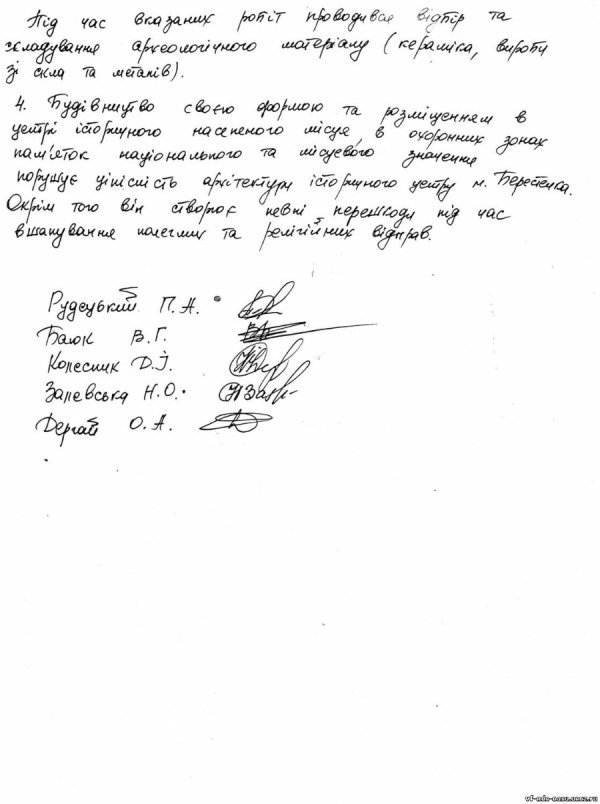 Під час вказаних робіт проводився відбір та
складування археологічного матеріалу (кераміка, вироби
зі скла та металів).
4. Будівництво своєю формою та розміщенням в
центрі історичного населеного місце, в охоронних зонах
пам'яток національного та місцевого значення
порушує цілісність архітектури історичного центру м. Берестечка.
Окрім того він створює певні перешкоди під час
вшанування полеглих та релігійних відправ.
Рудецький П. А.
Баюк В. Г.
Колесник Д. І.
Залевська Н. О.
Дергай О. А.
vf-ndc-oasu.ucoz.ru